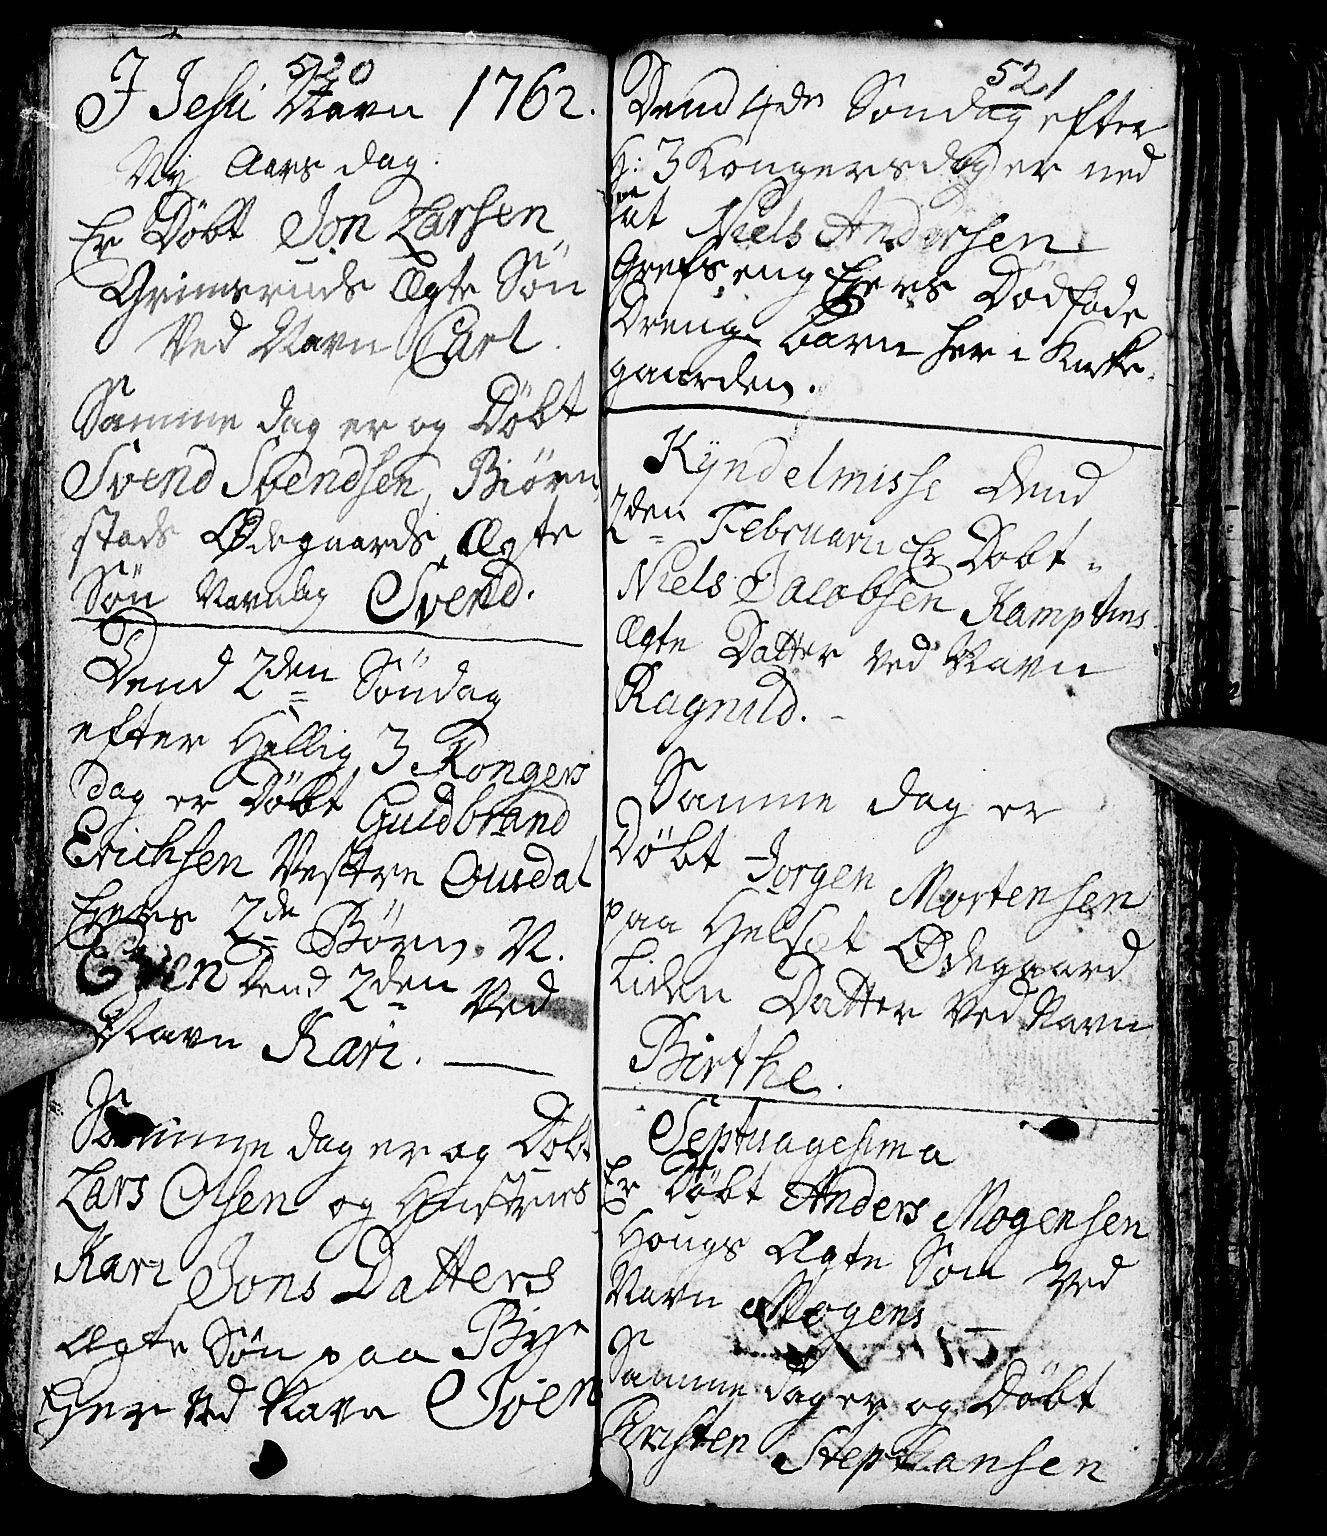 520
J Jesu Navn 1762.
Ny Aars dag.
Er Døbt Jon Larsen
Grimsruds Ægte Søn
Ved Navn Carl.
Samme dag er og Døbt
Svend Svendsen, Biørn
stads Ødegaards Ægte
Søn Navnlig Svend.
Dend 2den Søndag
efter Hellig 3 Konger
dag er Døbt Guldbrand
Erichsen Vestre Ousdal
Eyers 2de Børn, N.
Even dend 2den Ved
Navn Kari.
Samme dag er og Døbt
Lars Olsen og Hustrues
Kari Jons Datters
Ægte Søn paa Bye
Eyer ved Navn Iver
521
Dend 4de Søndag efter
H: 3 Kongersdag er ned
sat Niels Andersen
Grefseng Eyers Dødføde
Drenge barn her i Kirke
gaarden.
Kyndelmisse dend
2den Februarii Er Døbt
Niels Jacobsen Kamphus
Ægte Datter ved Navn
Ragnild.
Samme dag er
Døbt Jørgen Mortensen
paa Helset Ødegaard
Liden Datter Ved Navn
Birthe.
Septuagesima
Er Døbt Anders Mogensen
Hougs Ægte Søn Ved
Navn Mogens
Samme dag er og Døbt
Christen Stephansen